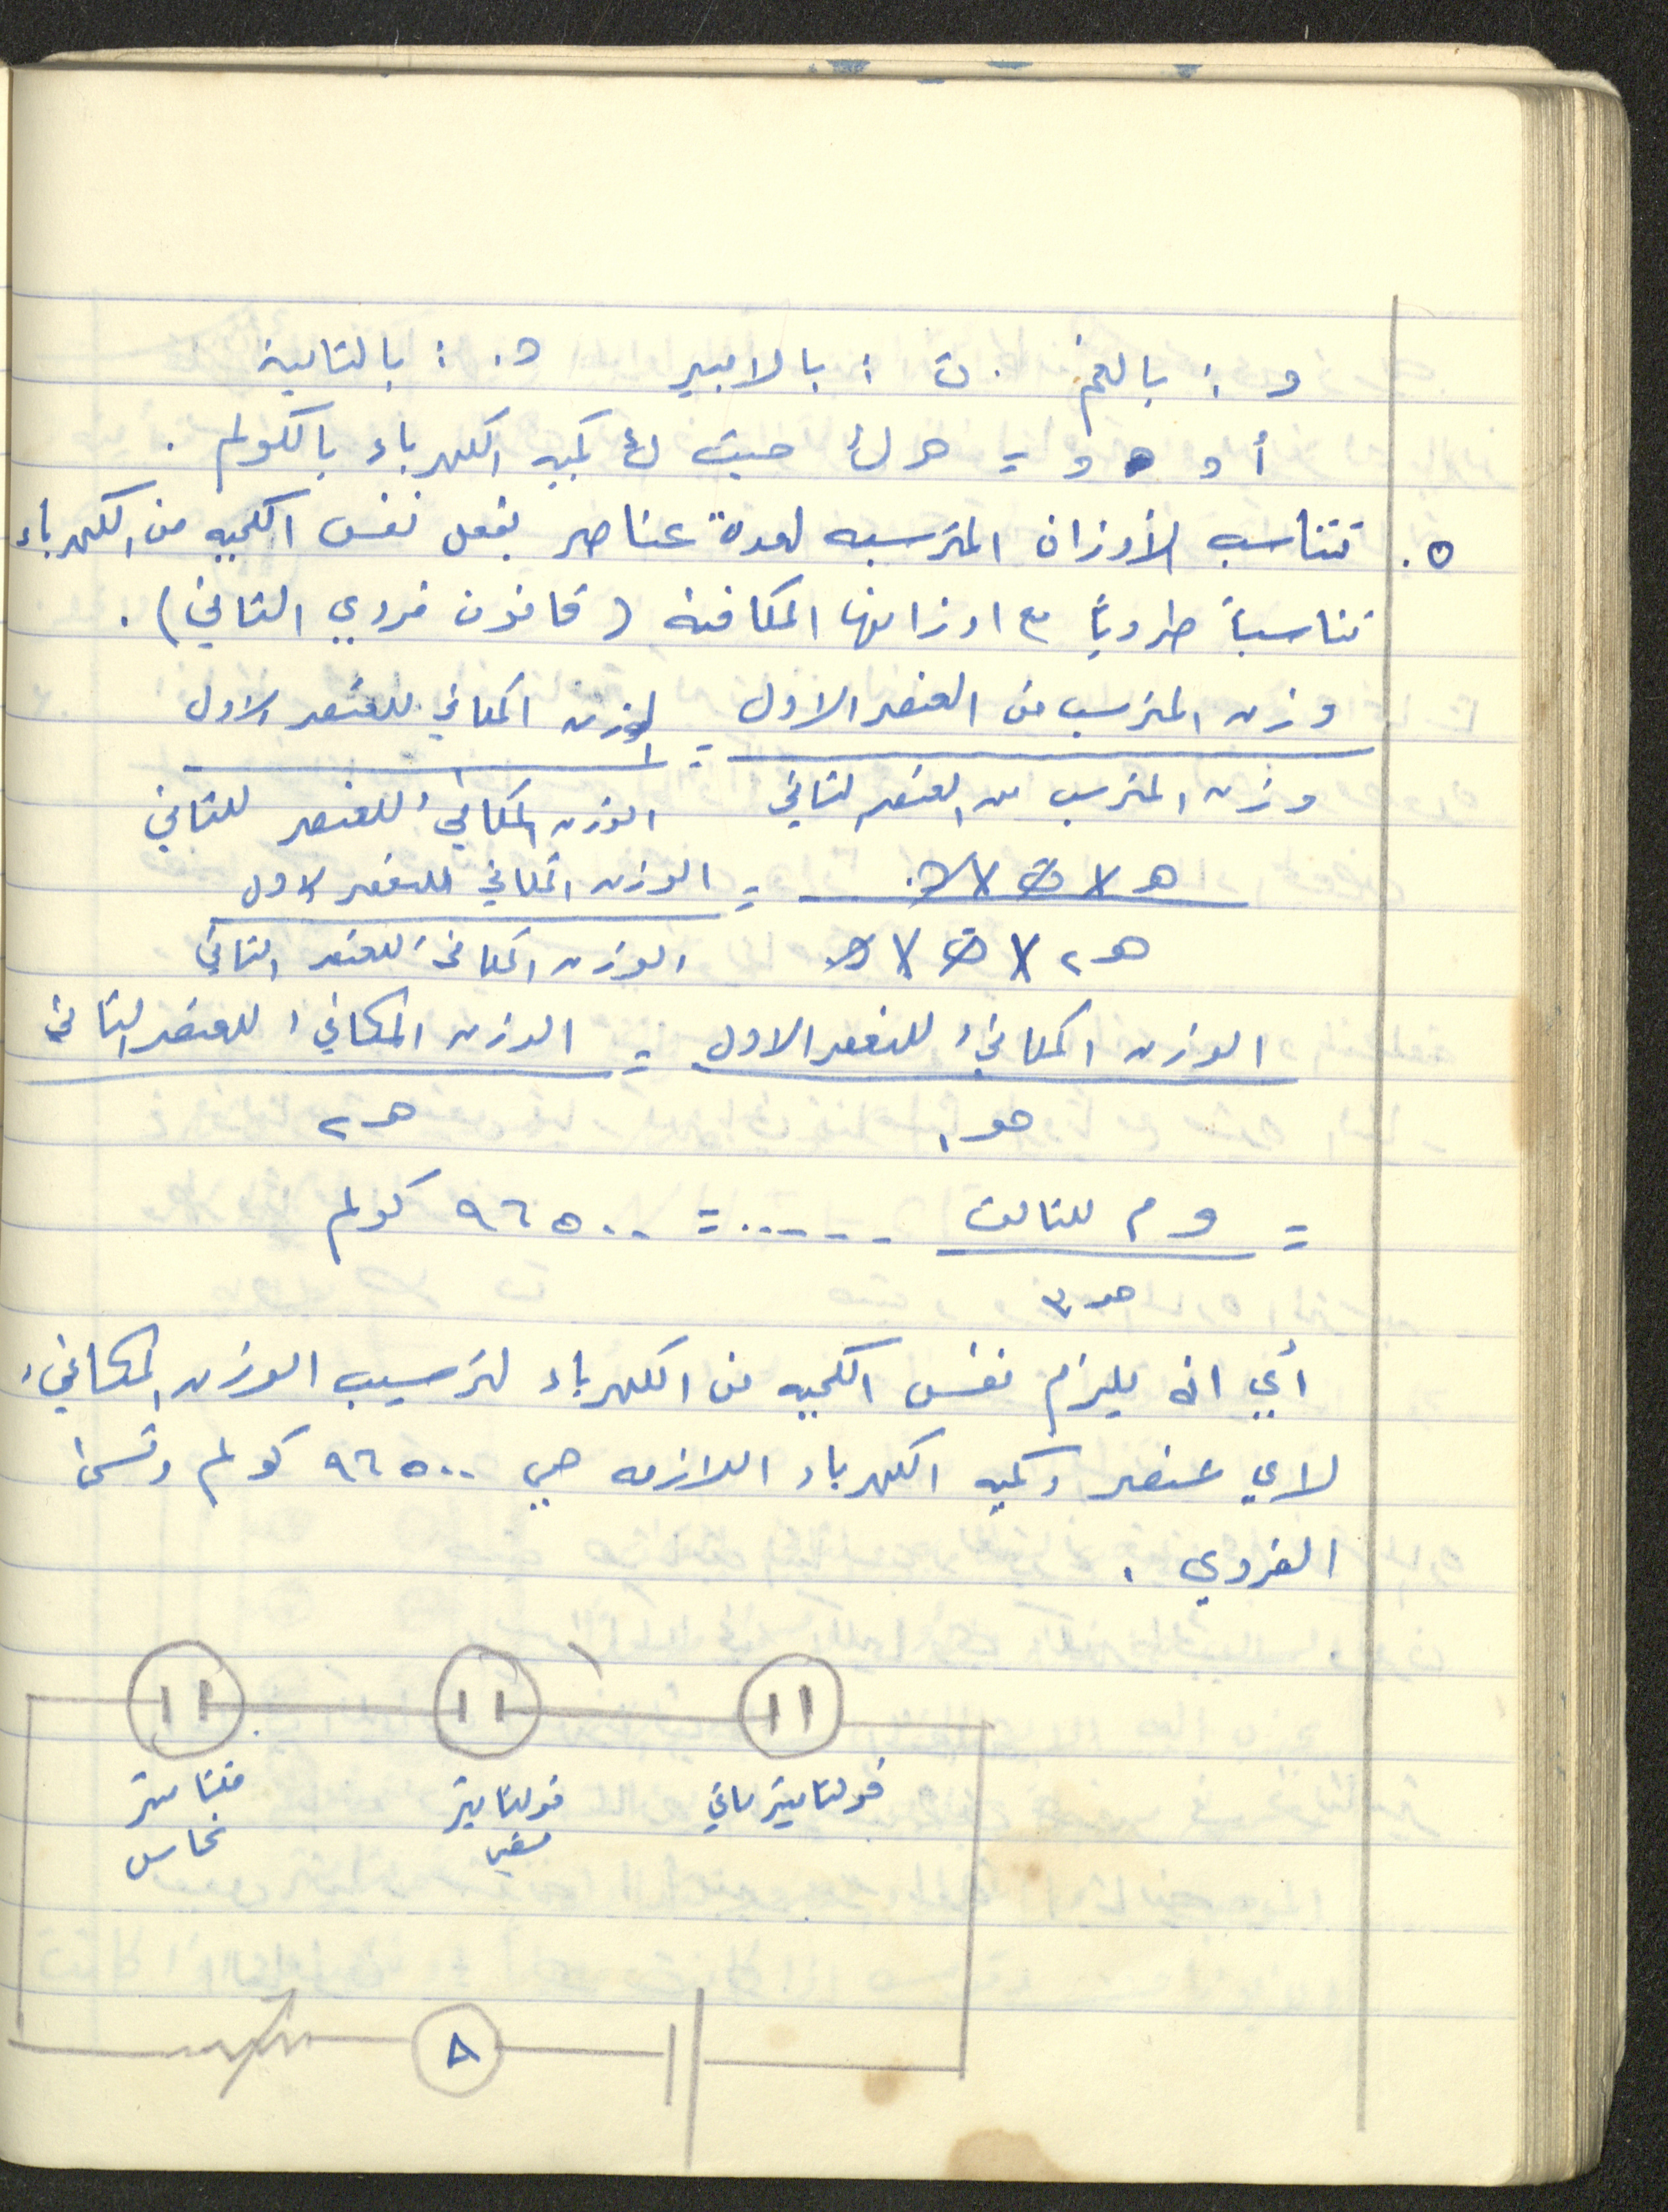 و : بالغم . ت : بالامبير ن . : بالثانية
أو و = هـ ك حيث ك كمية الكهرباء بالكولم .
٥. تتناسب الأوزان المترسبه لعدة عناصر بفعل نفس الكميه من الكهرباء
تناسباً طردياً مع اوزانها المكافئه ( قانون فردي الثاني ) .
وزن المترسب من العنصر الاول = الوزن المكافئ للعنصر الاول
وزن المترسب من العنصر الثاني الوزن المكافئ للعنصر للثاني
هـ X ت X ن = الوزن المكافئ للعنصر الاول
هـ٢ X ت X ن الوزن المكافئ للعنصر الثاني
الوزن المكافئ للعنصر الاول = الوزن المكافئ للعنصر الثاني
هـ١ هـ٢
= و م للثالث ..... = ٩٦٥٠٠ كولم
هـ٣
أي انه يلزم نفس الكميه من الكهرباء لترسيب الوزن المكافئ
لاي عنصر وكميه الكهرباء اللازمه هي ٩٦٥٠٠ كولم وتسمى
الفردي .
فولتاميتر مائي فولتاميتر فلتاميتر
نحاس
A